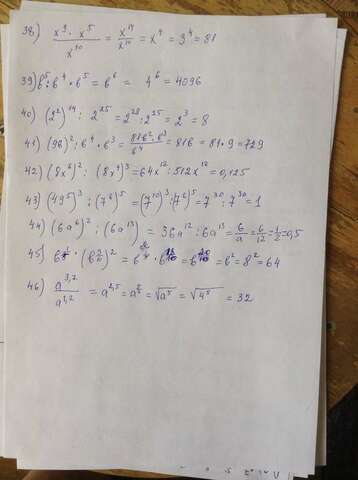 38) x⁹ · x⁵ / x¹⁰ = x¹⁴ / x¹⁰ = x⁴ = 3⁴ = 81
39) b⁵ : b⁴ · b⁵ = b⁶ 4⁶ = 4096
40) (2²)¹⁴ : 2²⁵ = 2²⁸ : 2²⁵ = 2³ = 8
41) (9b)² : b⁴ · b³ = 81b² · b³ / b⁴ = 81b = 81 · 9 = 729
42) (8x⁶)² : (8x⁴)³ = 64x¹² : 512x¹² = 0,125
43) (49⁵)³ : (7⁶)⁵ = (7¹⁰)³ : (7⁶)⁵ = 7³⁰ : 7³⁰ = 1
44) (6a⁶)² : (6a¹³) = 36a¹² : 6a¹³ = 6/a = 6/12 = 1/2 = 0,5
45) · (b 9/10)² = b = b = b² = 8² = 64
46) a³,⁷ / a¹,² = a²,⁵ = = √a⁵ = √4⁵ = 32